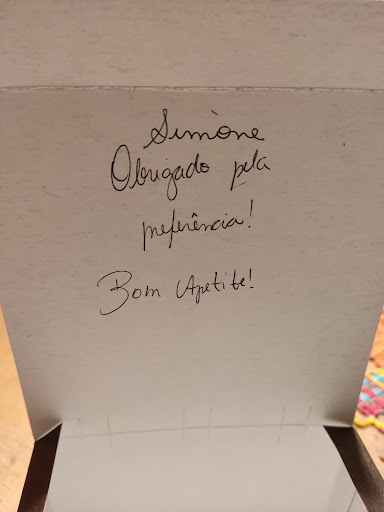 Simone
Obrigado pela
preferência!
Bom Apetite!